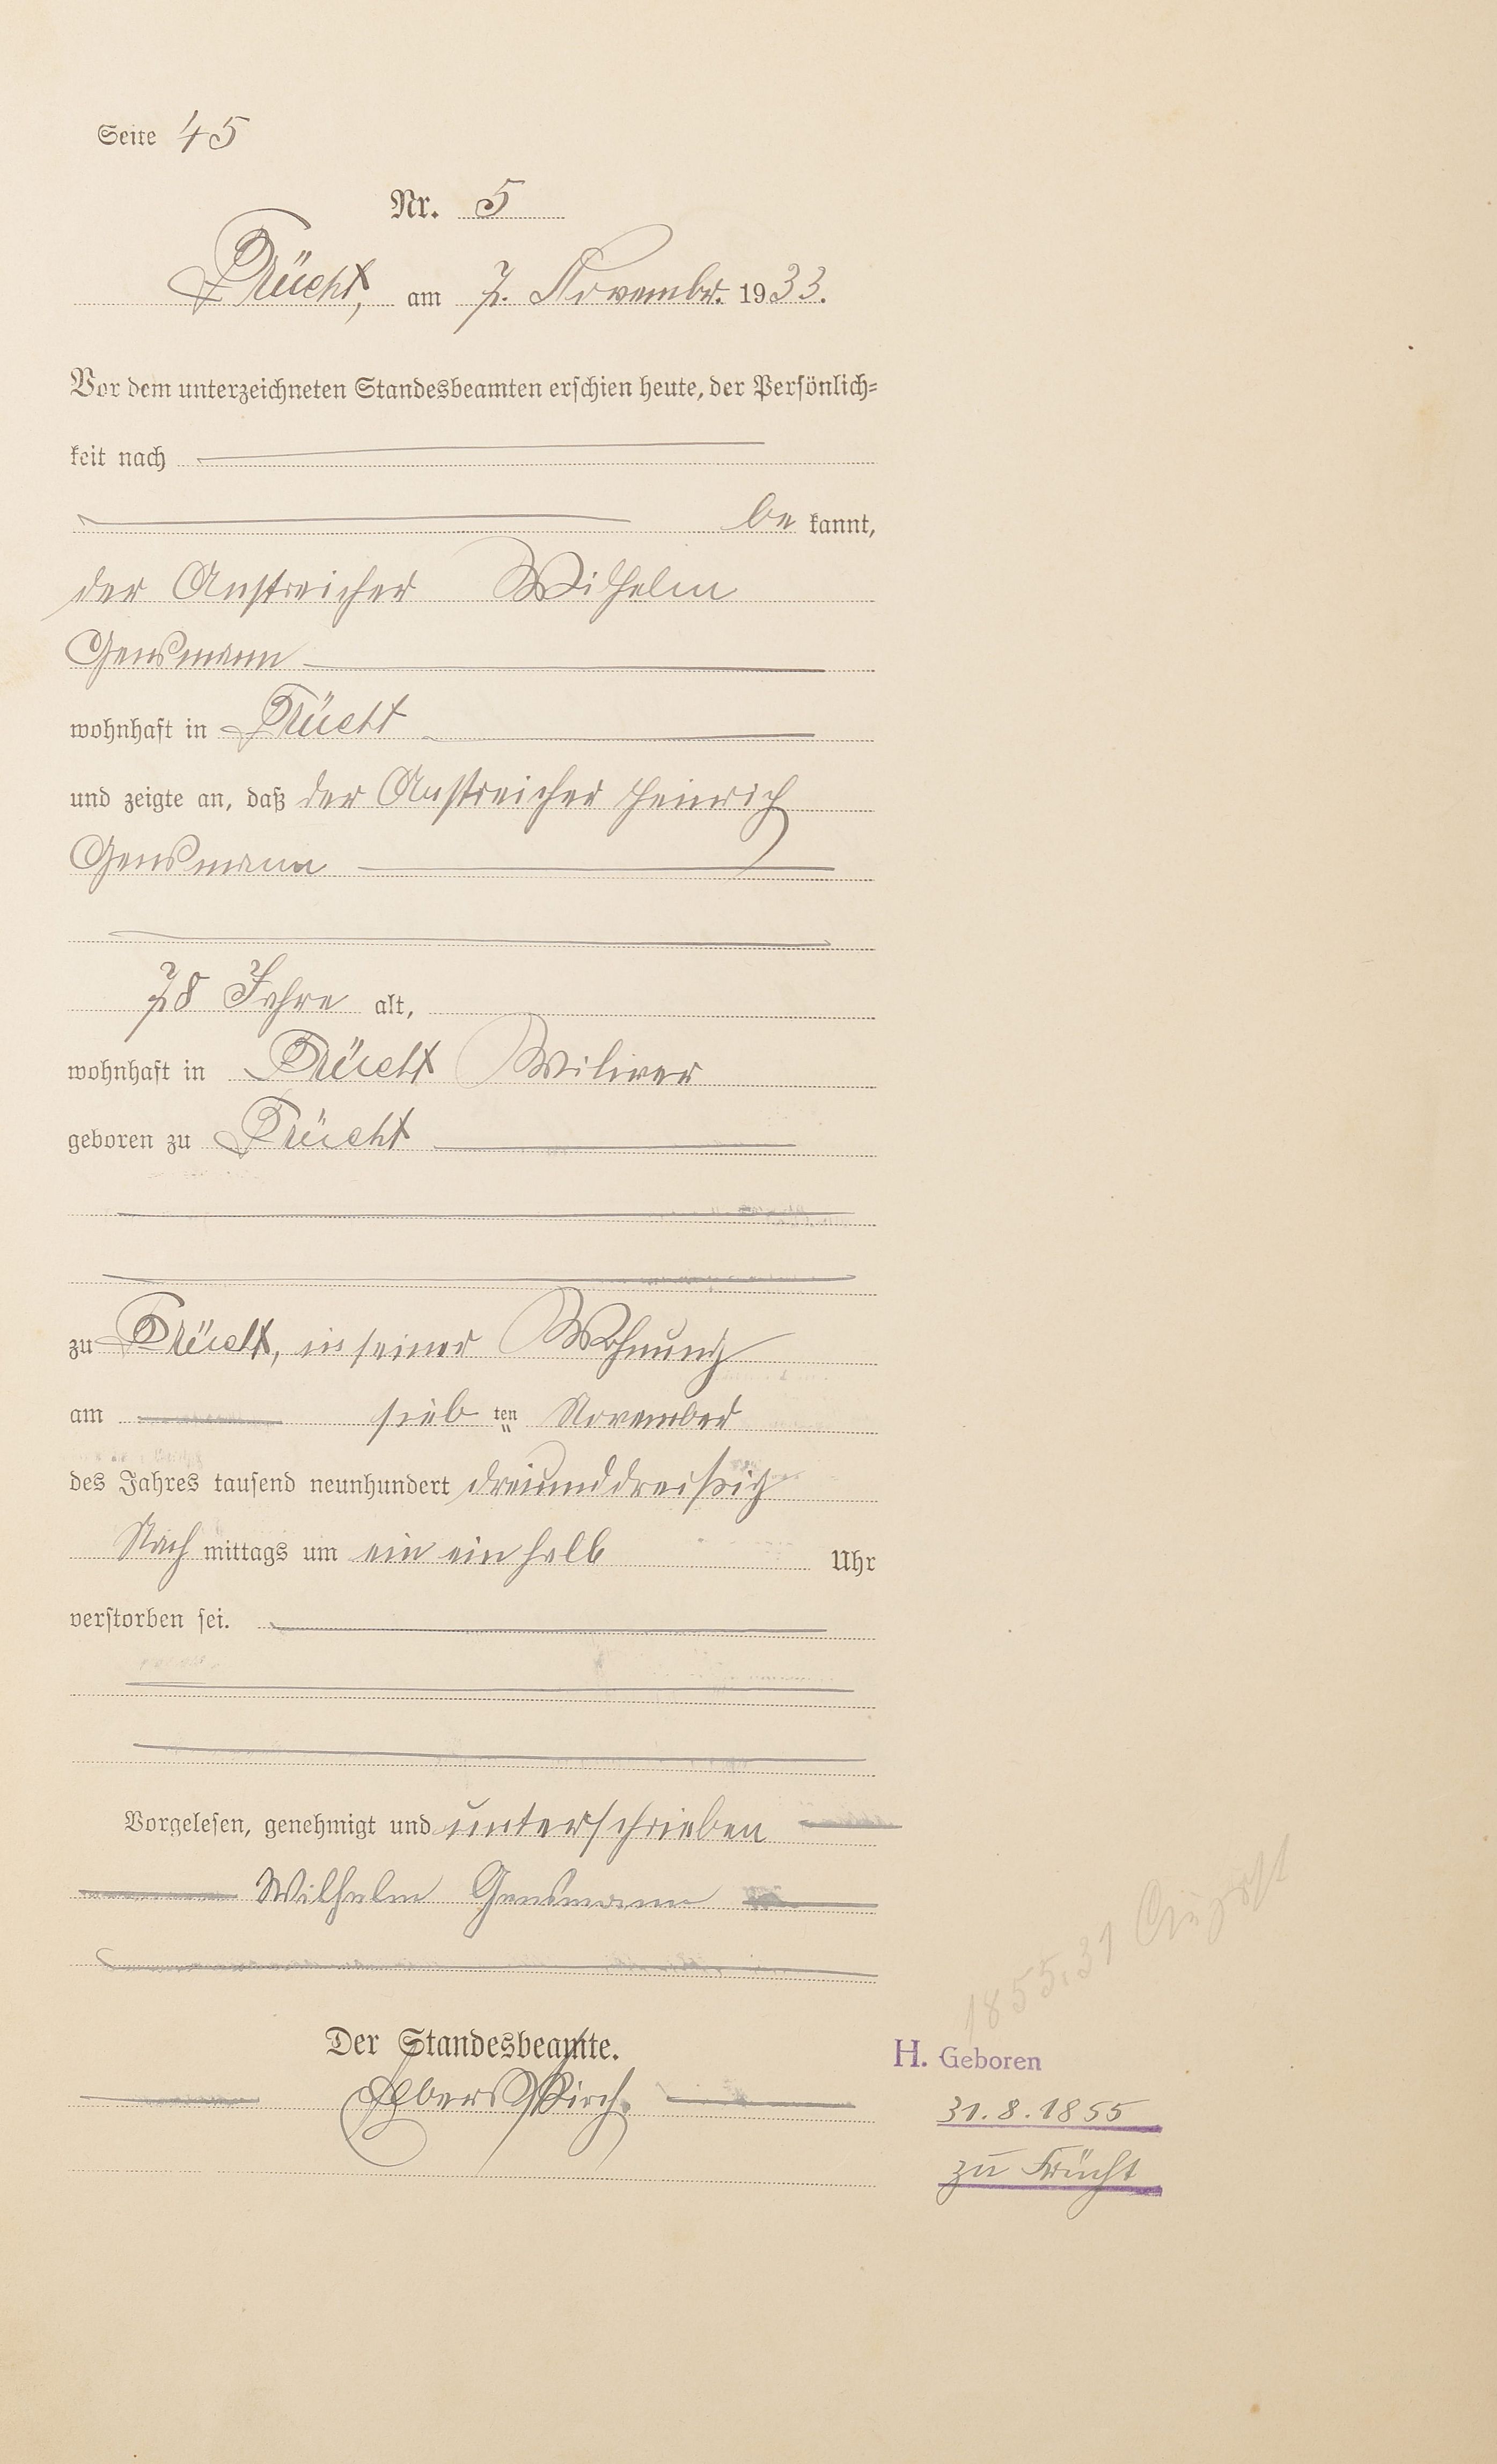 Seite 45
Nr. 5
Frücht, am 7. Novembr. 1933.
Vor dem unterzeichneten Standesbeamten erschien heute, der Persönlich-
keit nach
be kannt,
der Anstreicher Wilhelm
Gensmann
wohnhaft in Frücht
und zeigte an, daß der Anstreicher Heinrich
Gensmann
78 Jahre alt,
wohnhaft in Frücht Witwer
geboren zu Frücht
zu Frücht, in seiner Wohnung
am sieb ten November
des Jahres tausend neunhundert dreiunddreißig
Nach mittags um ein ein halb Uhr
verstorben sei.
Vorgelesen, genehmigt und unterschrieben
Wilhelm Gensmann
Der Standesbeamte.
1855. 31 August
H. Geboren
31.8.1855
zu Frücht